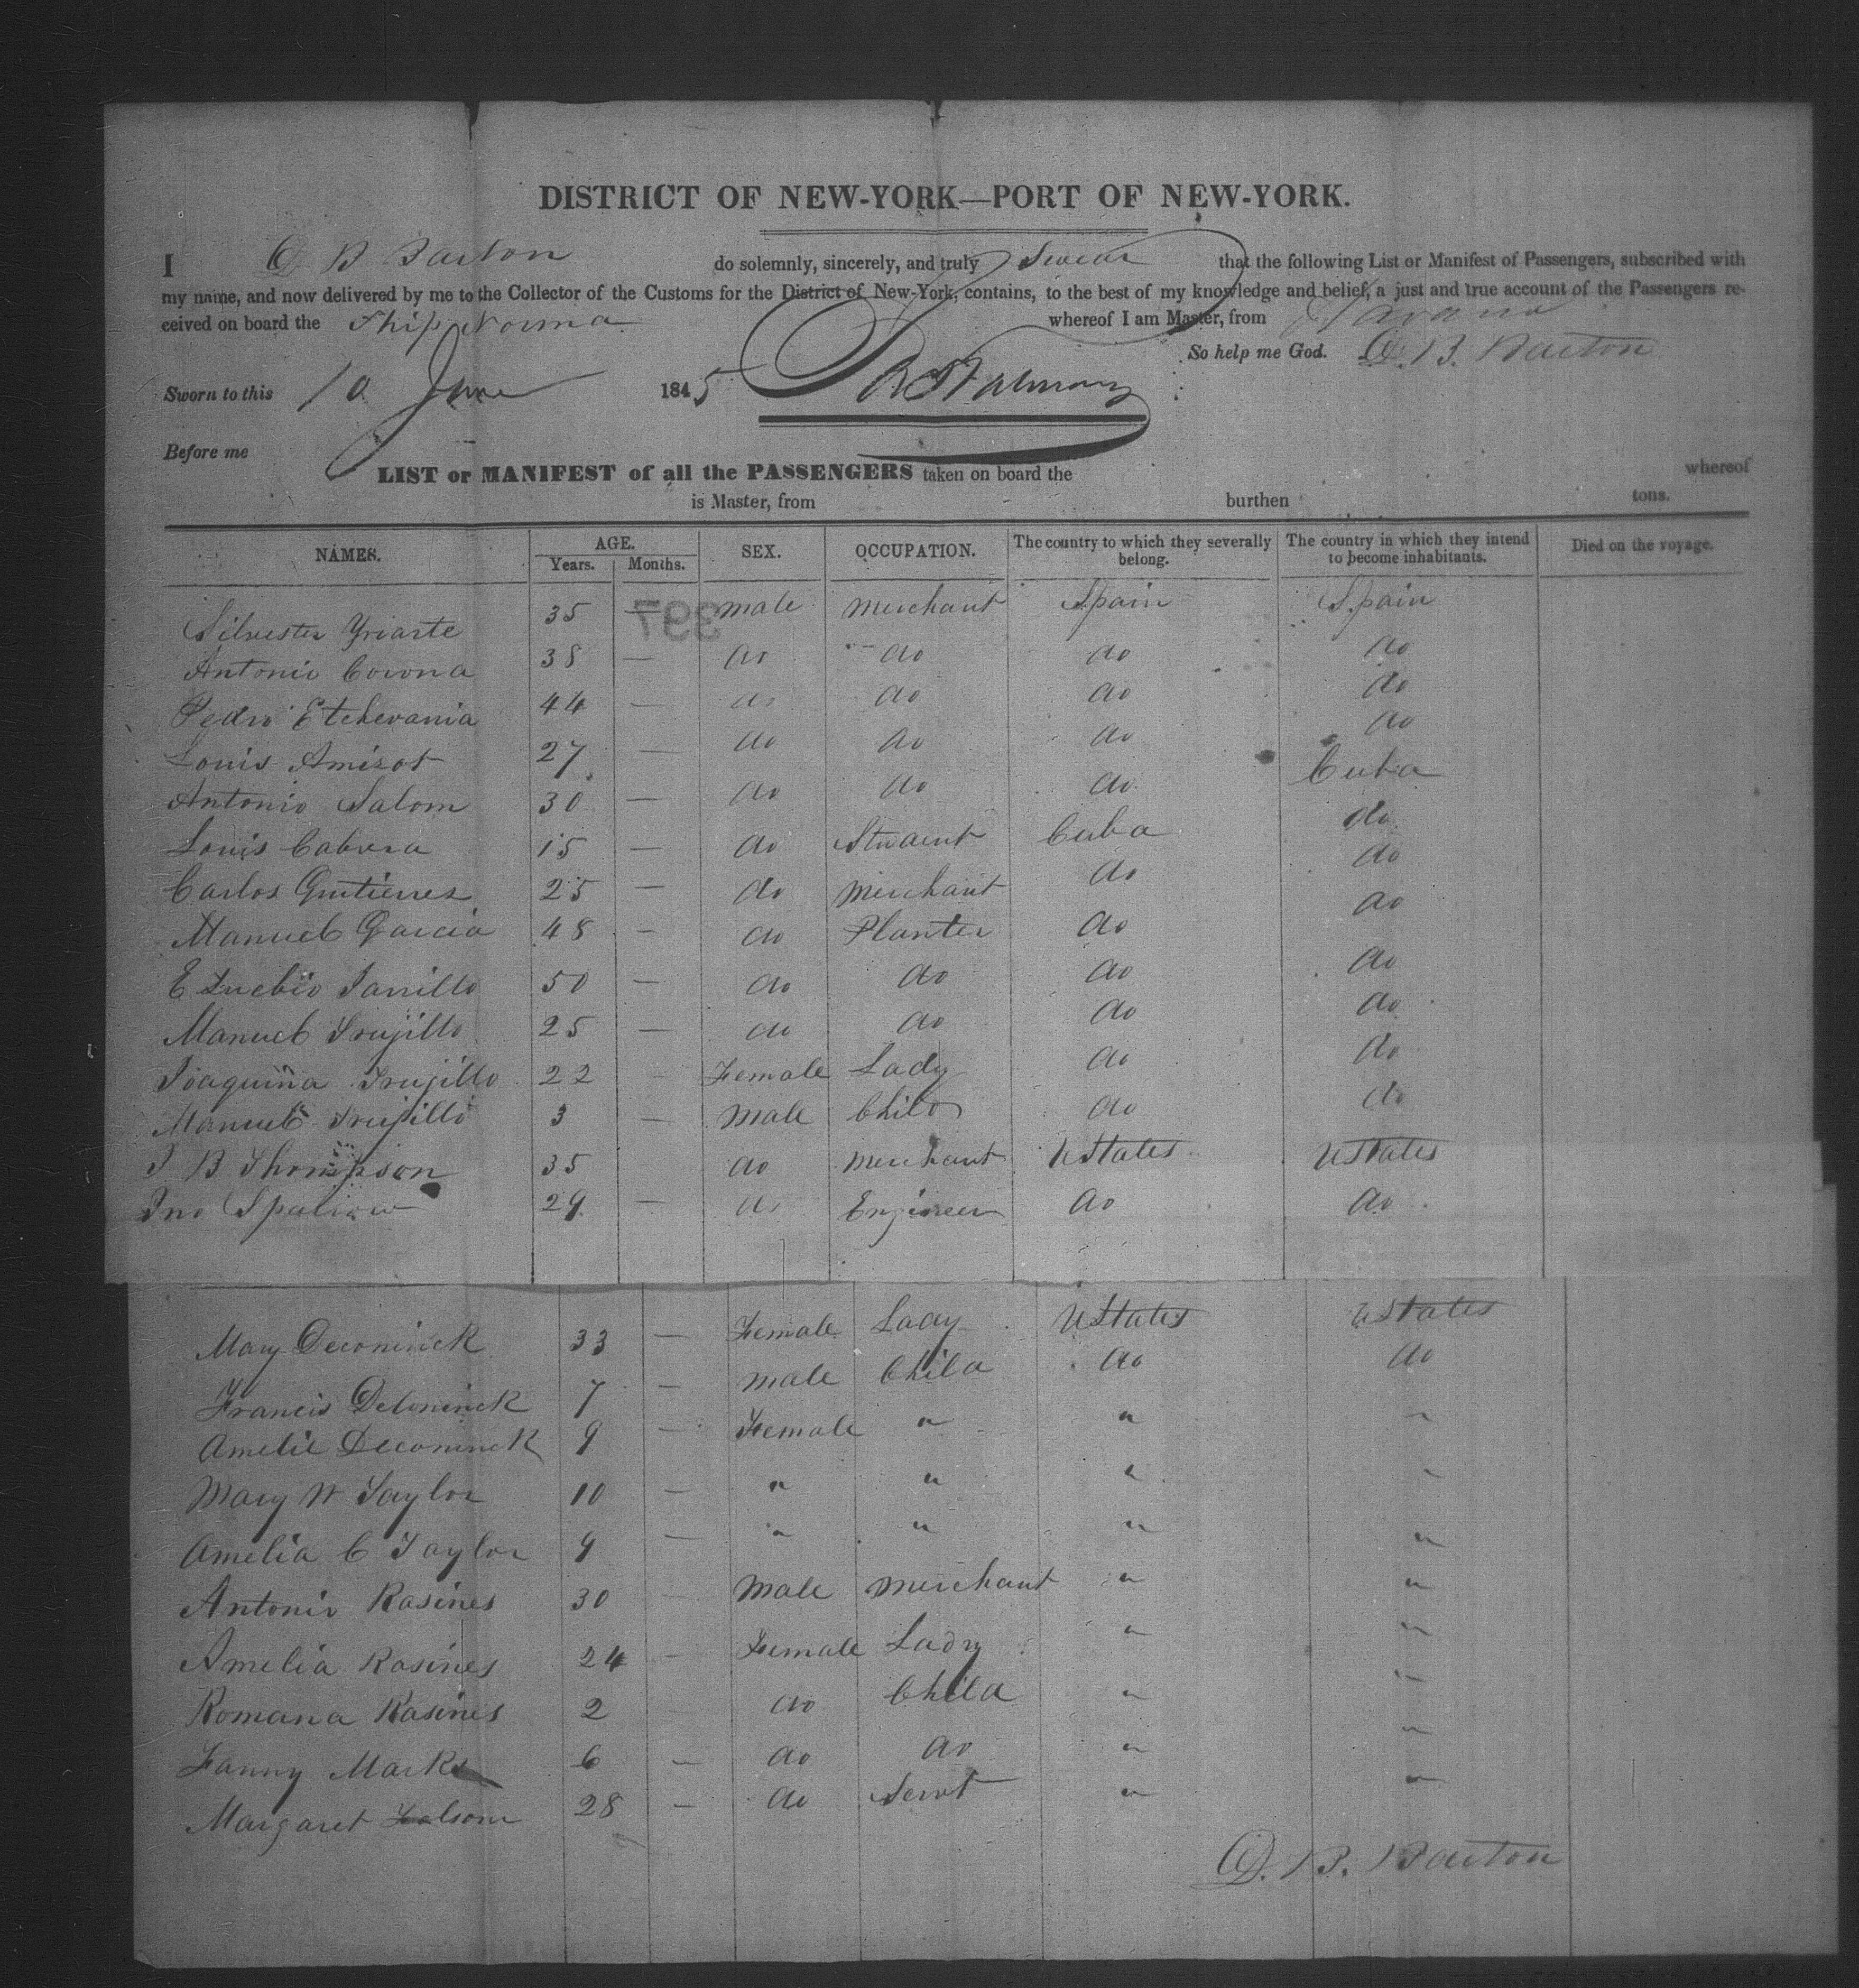 DISTRICT OF NEW-YORK—PORT OF NEW-YORK.
I D B Barton do solemnly, sincerely, and truly Swear that the following List or Manifest of Passengers, subscribed with
my name, and now delivered by me to the Collector of the Customs for the District of New-York, contains, to the best of my knowledge and belief, a just and true account of the Passengers re-
ceived on board the Ship Norma whereof I am Master, from Havana
So help me God. D. B. Barton
Sworn to this 10 June 1845
Before me
LIST or MANIFEST of all the PASSENGERS taken on board the whereof
is Master, from burthen tons.
NAMES. AGE. Years. Months. SEX. OCCUPATION. The country to which they severally belong. The country in which they intend to become inhabitants. Died on the voyage.
397
Silvester Yriarte 35 — male merchant Spain Spain
Antonio Corona 38 — do do do do
Pedro Etchevania 44 — do do do do
Louis Amizot 27 — do do do do
Antonio Salom 30 — do do do Cuba
Louis Cabrera 15 — do Student Cuba do
Carlos Gutierres 25 — do merchant do do
Manuel Garcia 48 — do Planter do do
Eusebio 50 — do do do do
Manuel Trujillo 25 — do do do do
Joaquina Trujillo 22 — Female Lady do do
Manuel Trujillo 3 — male Child do do
J B Thompson 35 do merchant UStates UStates
Jno Sparrow 29 — do Engineer do do
Mary Deconinck 33 — Female Lady UStates UStates
Francis Deconinck 7 — male Child do do
Amelie Deconinck 9 — Female " " "
Mary W Taylor 10 — " " " "
Amelia C Taylor 9 — " " " "
Antonio Rasines 30 — male merchant " "
Amelia Rasines 24 — Female Lady " "
Romana Rasines 2 do Child " "
Fanny Marks 6 — do do " "
Margaret Folsom 28 — do Servt " "
D. B. Barton